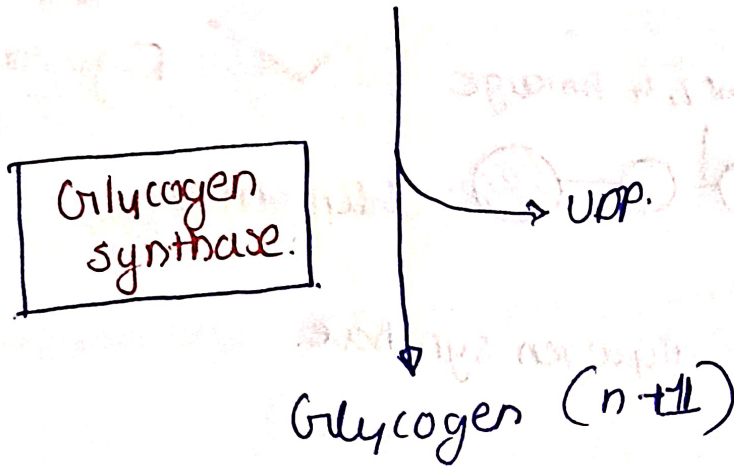 Glycogen
synthase.
UDP.
Glycogen (n+1)